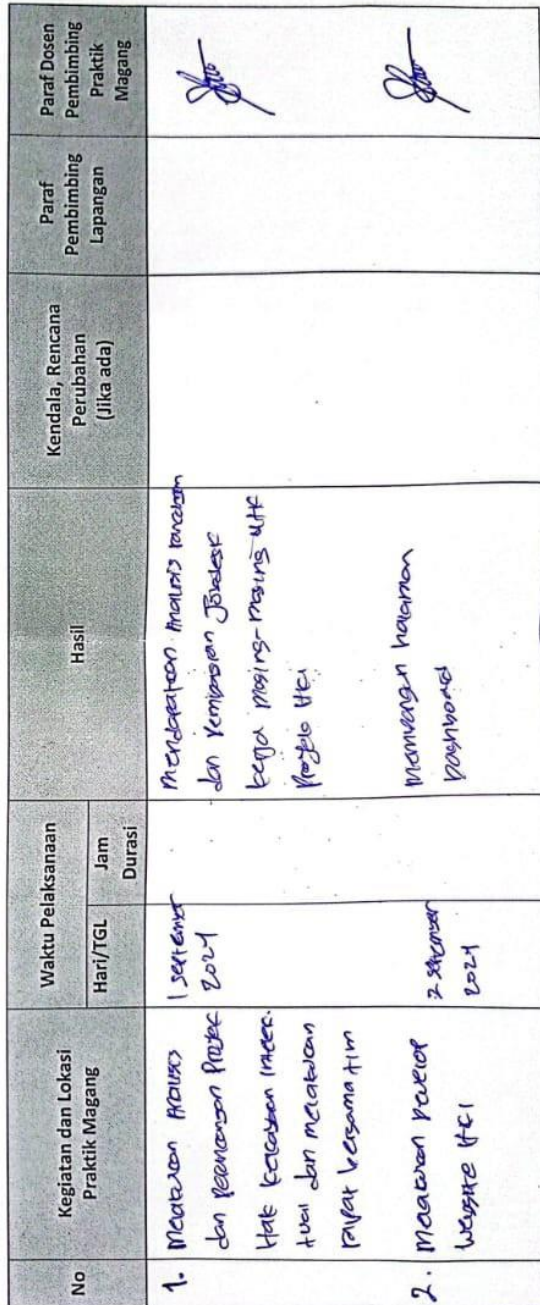 No
Kegiatan dan Lokasi
Praktik Magang
Waktu Pelaksanaan
Hari/TGL
Jam
Durasi
Hasil
Kendala, Rencana
Perubahan
(Jika ada)
Paraf
Pembimbing
Lapangan
Paraf Dosen
Pembimbing
Praktik
Magang
1.
Melakukan Analisis
dan perancangan Projek
Hak kekayaan Intelek
tual dan melakukan
rapat bersama tim
1 september
2024
Mendapatkan Analisis rancangan
dan pembagian Jobdesk
kerja masing-masing utk
Projek HKI
2.
Melakukan develop
website HKI
2 september
2024
membangun halaman
Dashboard